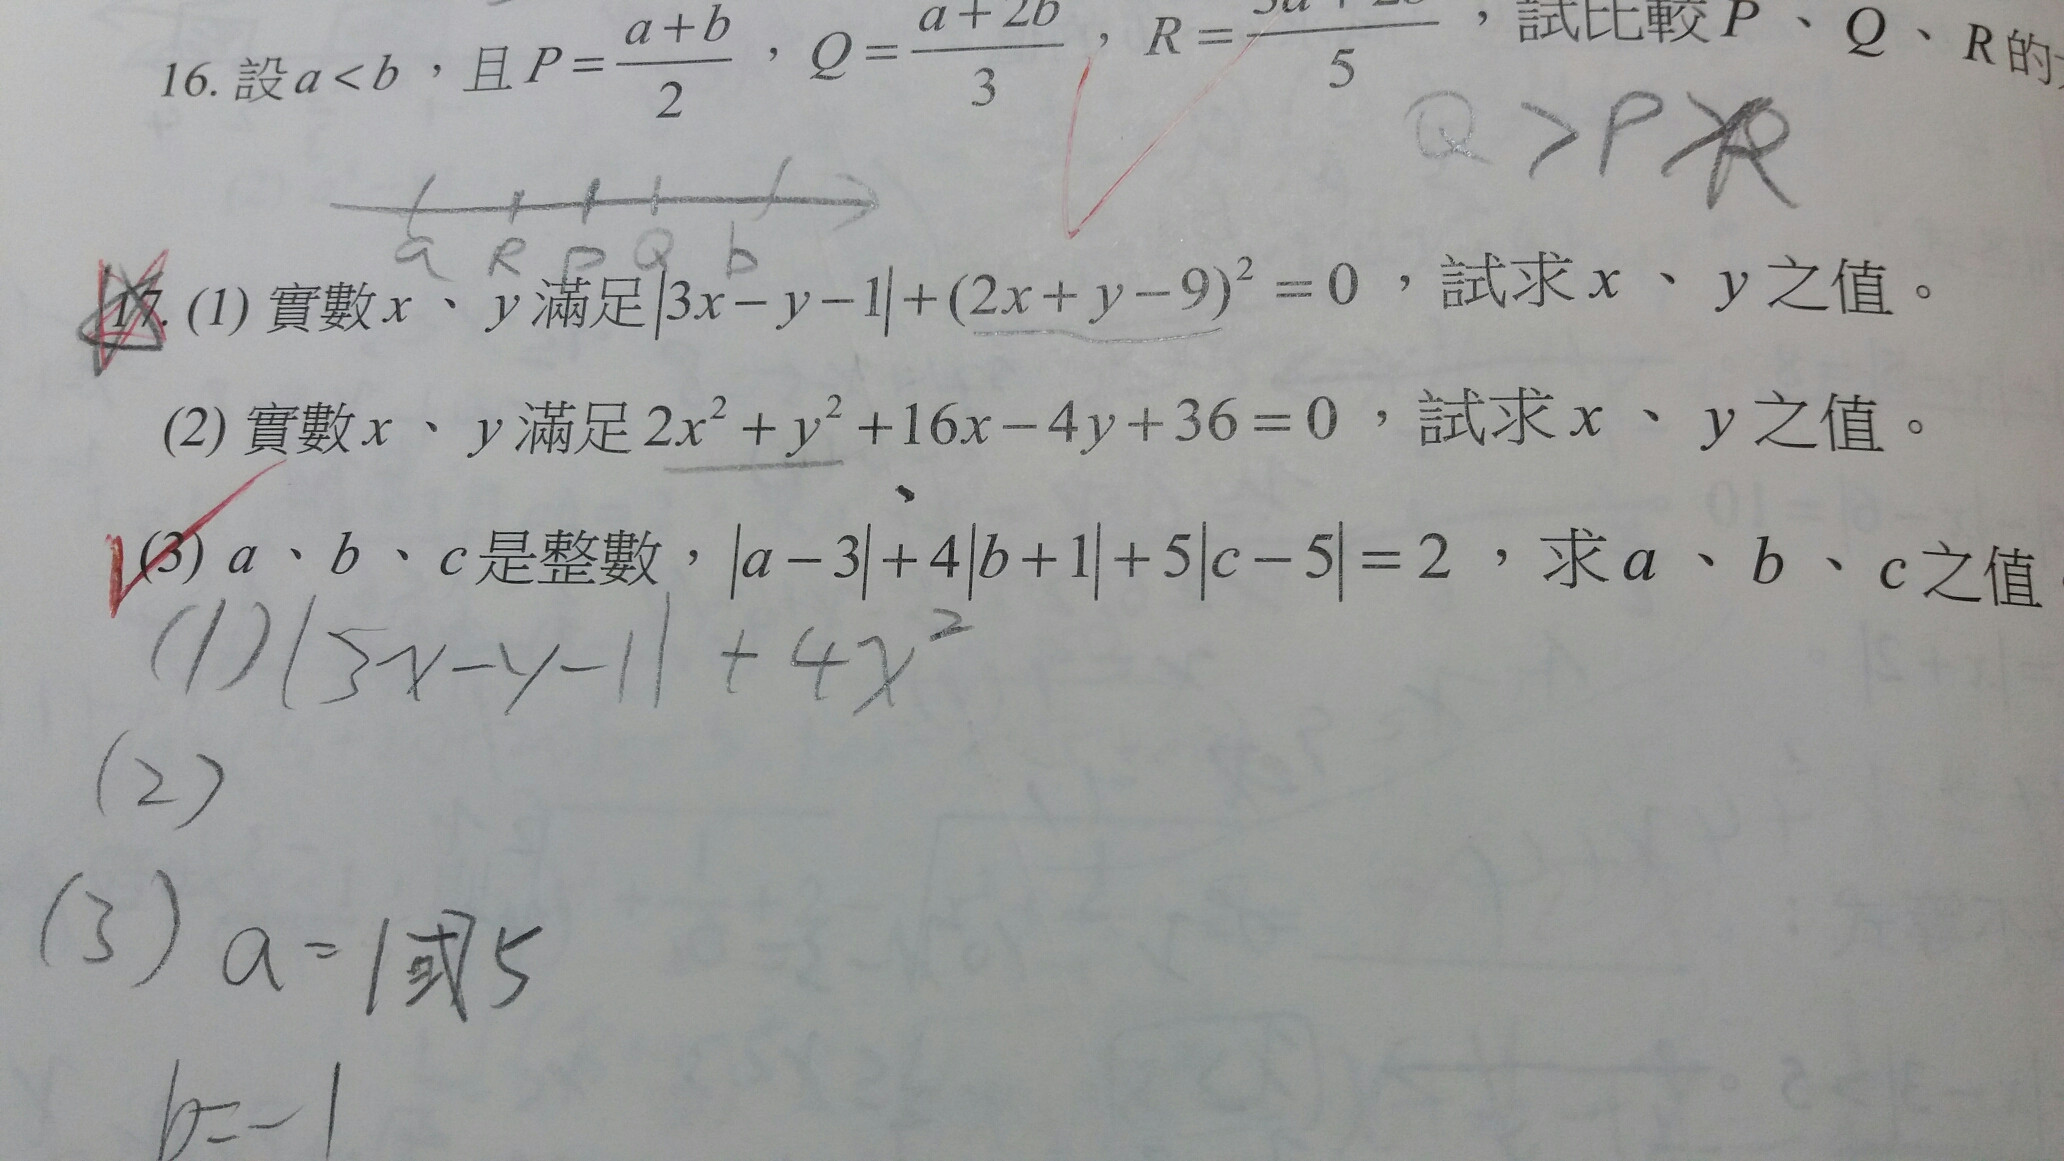 16. 設 a < b，且 P = \frac{a+b}{2}，Q = \frac{a+2b}{3}，R = \frac{3a+2b}{5}，試比較 P、Q、R 的
Q > P > R
a R P Q b
17. (1) 實數 x、y 滿足 |3x-y-1|+(2x+y-9)² = 0，試求 x、y 之值。
(2) 實數 x、y 滿足 2x²+y²+16x-4y+36 = 0，試求 x、y 之值。
(3) a、b、c 是整數，|a-3|+4|b+1|+5|c-5| = 2，求 a、b、c 之值
(1) |3x-y-1| + 4x²
(2)
(3) a = 1或5
b = -1